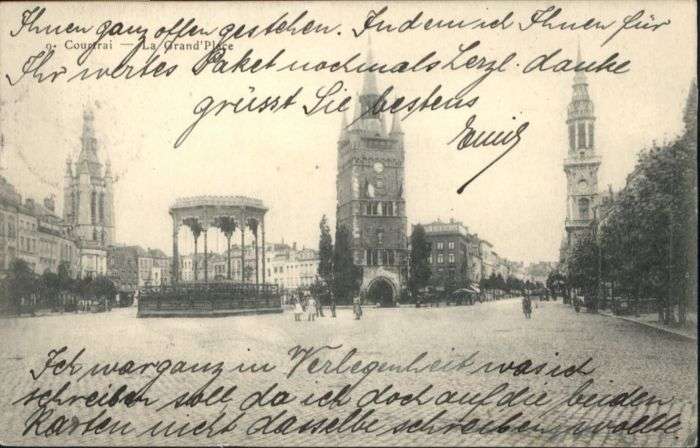 Ihnen ganz offen gestehen. Indem ich Ihnen für
9. Courtrai — La Grand'Place
Ihr wertes Paket nochmals herzl. danke
grüsst Sie bestens
Emil
Ich war ganz in Verlegenheit was ich
schreiben soll da ich doch auf die beiden
Karten nicht dasselbe schreiben wollte